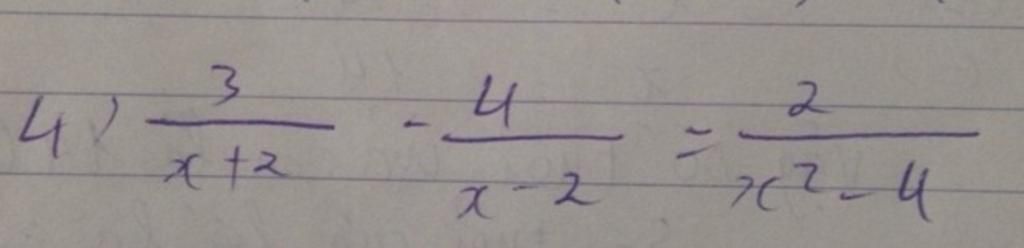 4) 3/(x+2) - 4/(x-2) = 2/(x²-4)